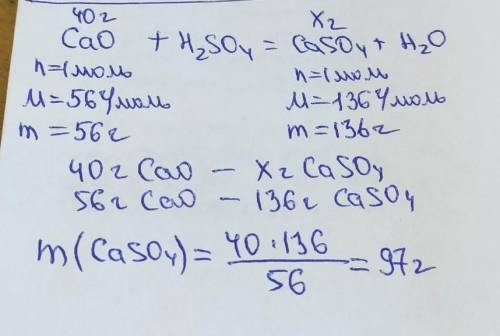 40г Xг
CaO + H₂SO₄ = CaSO₄ + H₂O
n=1моль n=1моль
M=56г/моль M=136г/моль
m=56г m=136г
40г CaO — Xг CaSO₄
56г CaO — 136г CaSO₄
m(CaSO₄)= 40·136 / 56 = 97г